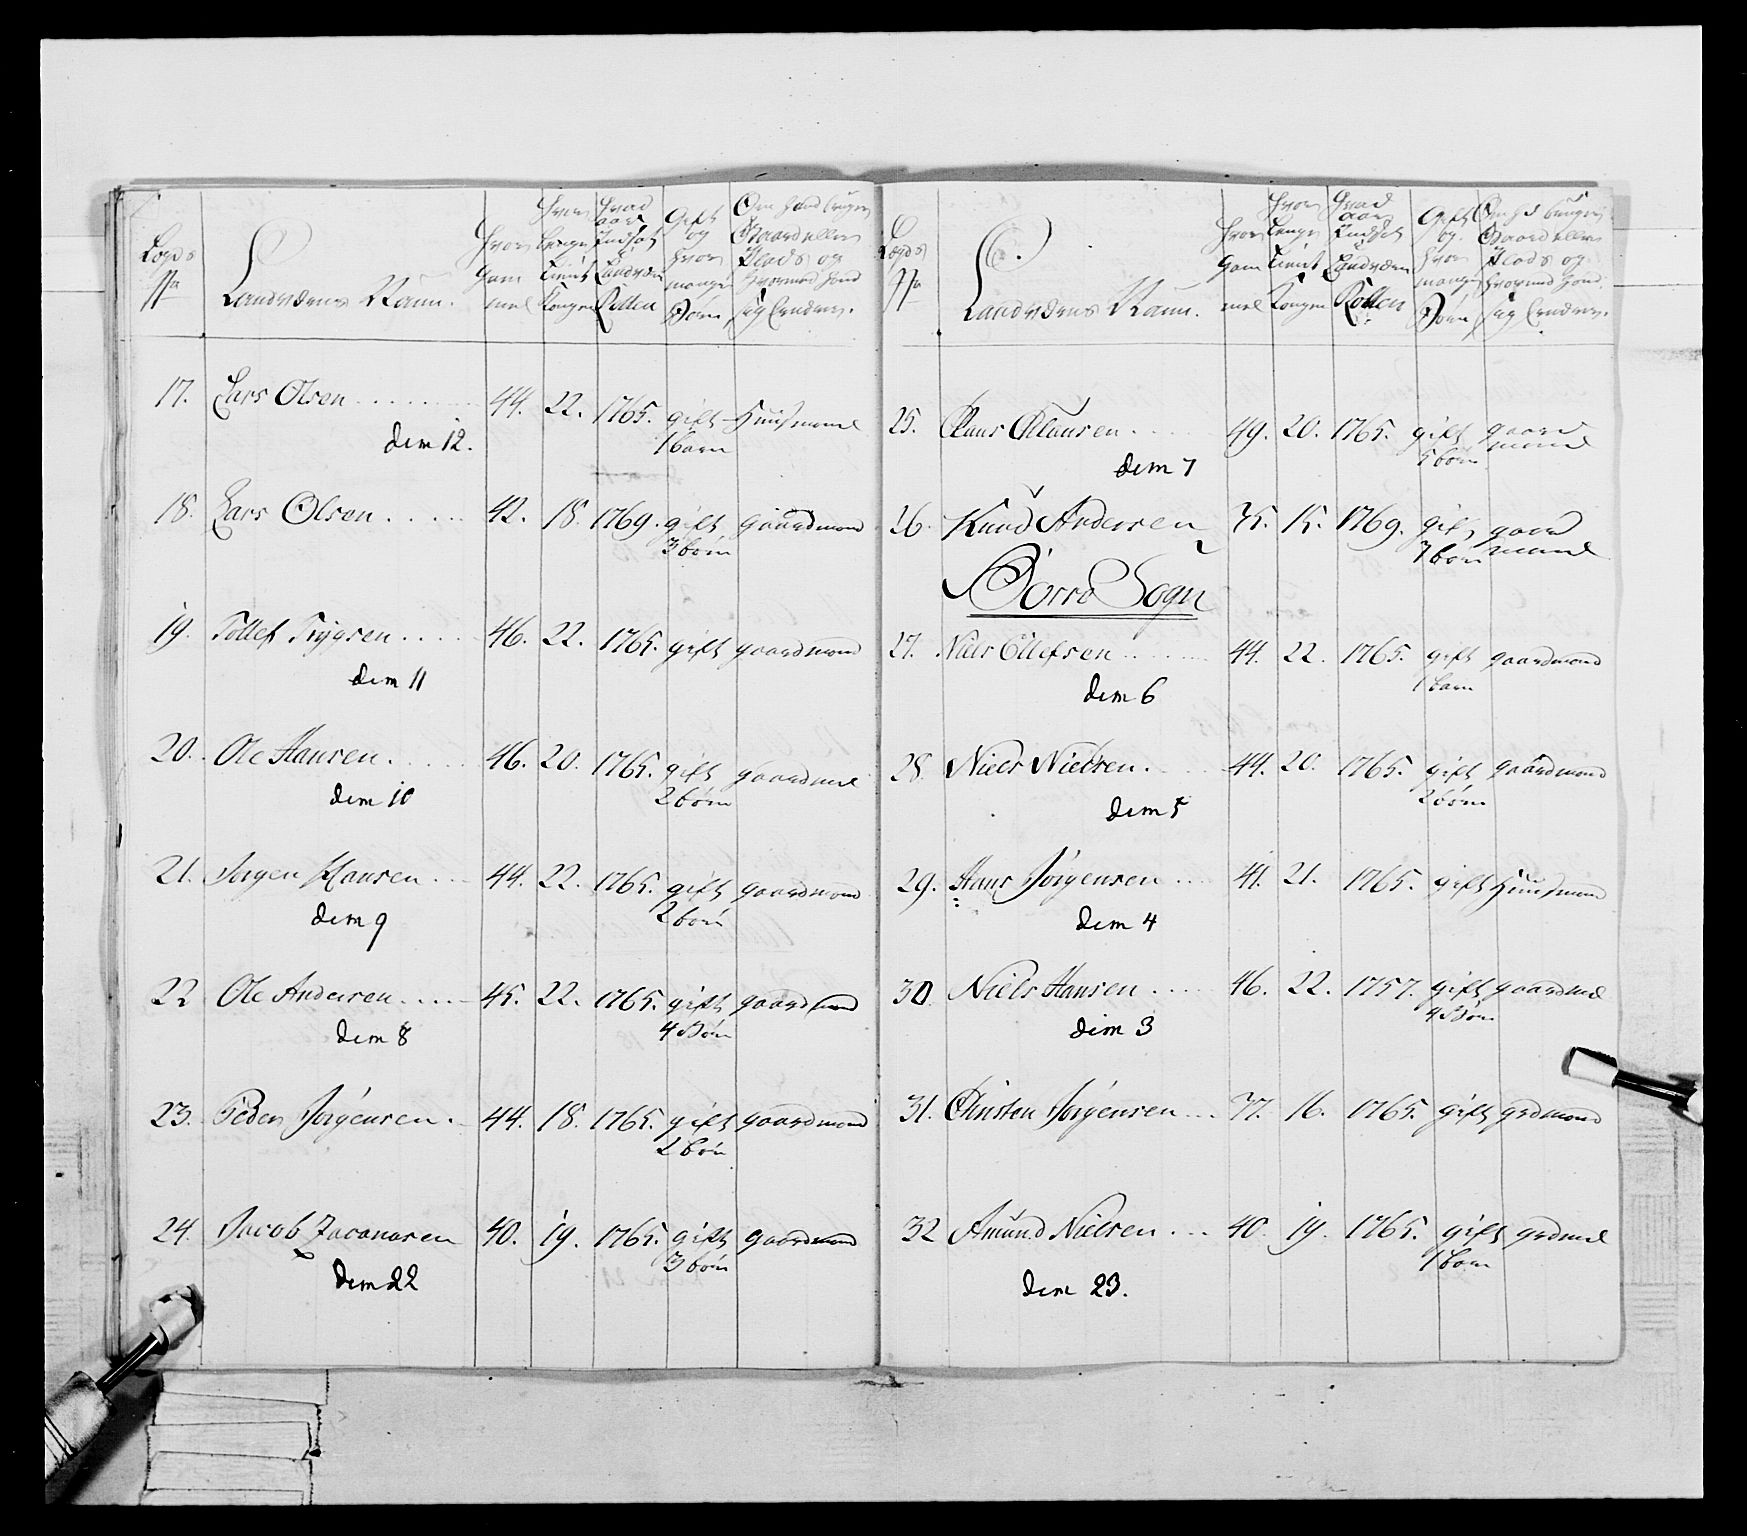 Legds
No
Landværns Navn.
Hvor
Gam
mel
Hvor
Længe
Tient
Kongen
Hvad
aar
Indsat
Landværn
Rollen
Gift
og
hvor
mange
Børn
Om hand bruger
Gaard eller
Plads og
hvormed hand
sig Ernærer.
17. Lars Olsen . . . . . . 44. 22. 1765. gift Huusmand
1 barn
dem 12.
18. Lars Olsen . . . . . 42. 18. 1769. gift gaardmand
3 børn
19. Tollef Trygsen . . . . 46. 22. 1765. gift gaardmand
dem 11
20. Ole Hansen . . . . 46. 20. 1765. gift gaardmd
2 børn
dem 10
21. Jørgen Hansen . . . 44. 22. 1765. gift gaardmand
2 børn
dem 9
22 Ole Andersen . . . . . 45. 22. 1765. gift gaardmand
4 Børn
dem 8
23. Peder Jørgensen . . 44. 18. 1765. gift gaardmand
2 børn
24. Jacob 40. 19. 1765. gift gaardmand
3 børn
dem 22
Legds
No
Landværns Navn.
Hvor
Gam
mel
Hvor
Længe
Tient
Kongen
Hvad
aar
Indsat
Landværn
Rollen
Gift
og
hvor
mange
Børn
Om hd bruger
Gaard eller
Plads og
hvormed hand
sig Ernærer.
25. Claus Clausen . . . . 49. 20. 1765. gift gaard
5 børn mand
dem 7
26. Knud Andersen 35. 15. 1769. gift gaard
3 børn mand
Borre Sogn
27. Niels Ellefsen . . . . . 44. 22. 1765. gift gaardmand
1 barn
dem 6
28. Niels Nielsen . . . . 44. 20. 1765. gift gaardmand
2 børn
dem 5
29. Hans Jørgensen . . . . 41. 21. 1765. gift Huusmand
dem 4
30. Niels Hansen . . . . 46. 22. 1757. gift gaardmd
4 Børn
dem 3
31. Christen Jørgensen . . . 37. 16. 1765. gift grdmand
32 Amund Nielsen . . . 40. 19. 1765. gift grdmd
1 barn
dem 23.